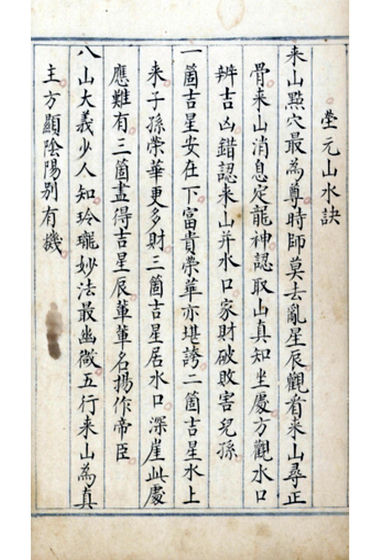 瑩元山水訣
来山㸃穴最為尊時師莫去亂星辰觀看来山尋正
骨来山消息定龍神認取山真知坐處方觀水口
辨吉凶錯認来山并水口家財破敗害兒孫
一箇吉星安在下富貴榮華亦堪誇二箇吉星水上
来子孫榮華更多財三箇吉星居水口深崖此處
應難有三箇盡得吉星辰軰軰名揚作帝臣
八山大義少人知玲瓏妙法最幽微五行来山為真
主方顯陰陽别有機